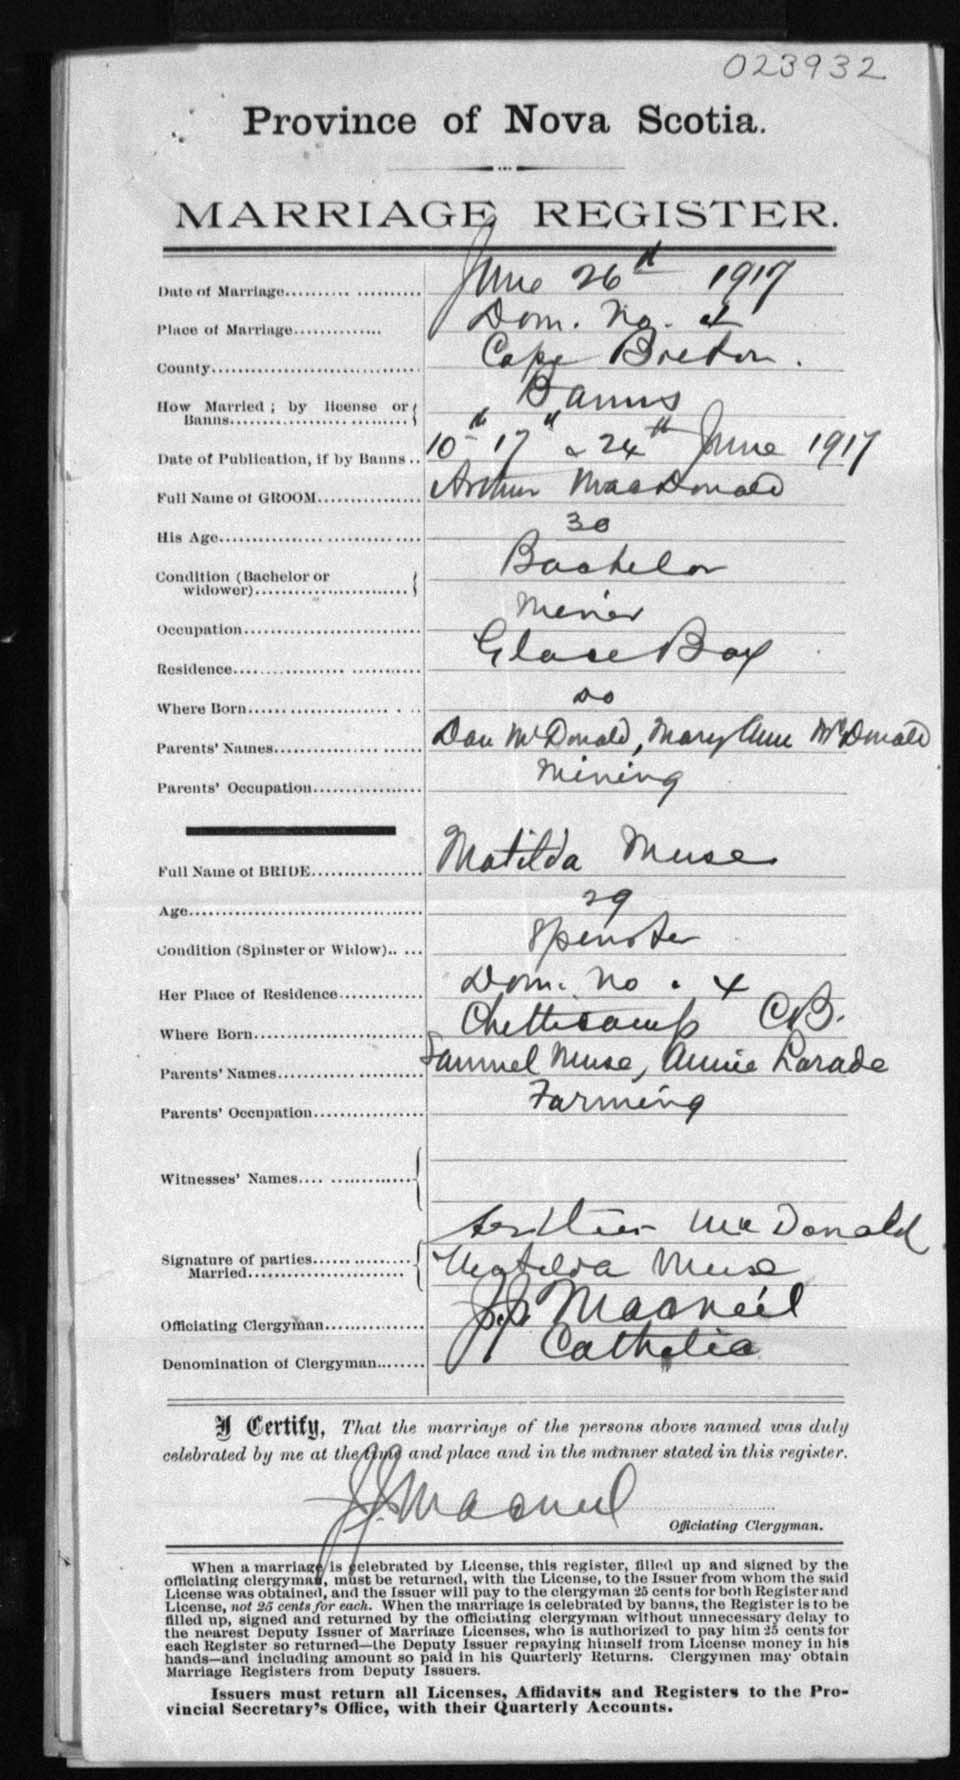 023932
Province of Nova Scotia.
MARRIAGE REGISTER.
Date of Marriage................... June 26th 1917
Place of Marriage............. Dom. No. 4
County............................... Cape Breton.
How Married; by license or Banns........................ Banns
Date of Publication, if by Banns.. 10th 17th & 24th June 1917
Full Name of GROOM............... Arthur MacDonald
His Age............................. 30
Condition (Bachelor or widower)........................ Bachelor
Occupation.......................... Miner
Residence........................... Glace Bay
Where Born......................... do
Parents' Names..................... Dan McDonald, Mary Ann McDonald
Parents' Occupation................ Mining
Full Name of BRIDE................. Matilda Muse
Age................................... 29
Condition (Spinster or Widow)..... Spinster
Her Place of Residence............ Dom. No. 4
Where Born......................... Chetticamp CB.
Parents' Names..................... Samuel Muse, Annie Larade
Parents' Occupation................ Farming
Witnesses' Names.................
Signature of parties Married....................... Arthur McDonald
Matilda Muse
Officiating Clergyman............... J.J. MacNeil
Denomination of Clergyman........ Catholic
I Certify, That the marriage of the persons above named was duly
celebrated by me at the time and place and in the manner stated in this register.
J.J. MacNeil
Officiating Clergyman.
When a marriage is celebrated by License, this register, filled up and signed by the
officiating clergyman, must be returned, with the License, to the Issuer from whom the said
License was obtained, and the Issuer will pay to the clergyman 25 cents for both Register and
License, not 25 cents for each. When the marriage is celebrated by banns, the Register is to be
filled up, signed and returned by the officiating clergyman without unnecessary delay to
the nearest Deputy Issuer of Marriage Licenses, who is authorized to pay him 25 cents for
each Register so returned—the Deputy Issuer repaying himself from License money in his
hands—and including amount so paid in his Quarterly Returns. Clergymen may obtain
Marriage Registers from Deputy Issuers.
Issuers must return all Licenses, Affidavits and Registers to the Pro-
vincial Secretary's Office, with their Quarterly Accounts.